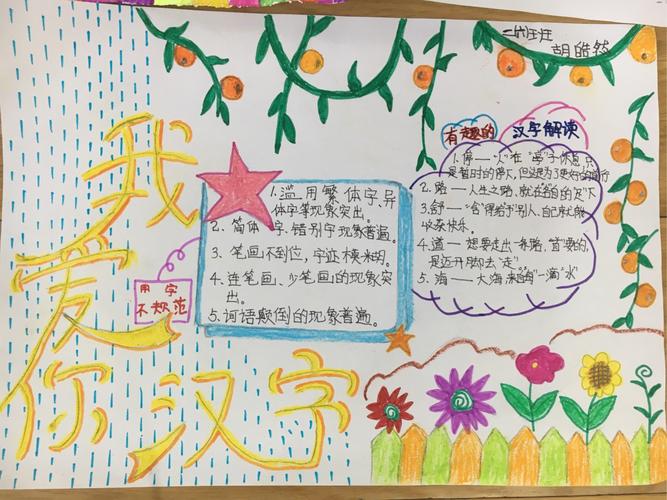 二六班班
胡皓然
我爱你汉字
有趣的
汉字解读
1. 停——"人"在"亭"子休息,只
是暂时的停下,但这是为了更好的前行
2. 路——人生之路,就在各自的足下
3. 舒——"舍"得"给予"别人,自己就能
收获快乐。
4. 道——想要走出一条路,首要的,
是迈开脚去"走"
5. 海——大海,来自每一滴"水"
用字
不规范
1. 滥用繁体字、异
体字等现象突出。
2. 简体字、错别字现象普遍。
3、笔画不到位,字迹模糊。
4、连笔画、少笔画的现象突
出。
5. 词语颠倒的现象普遍。